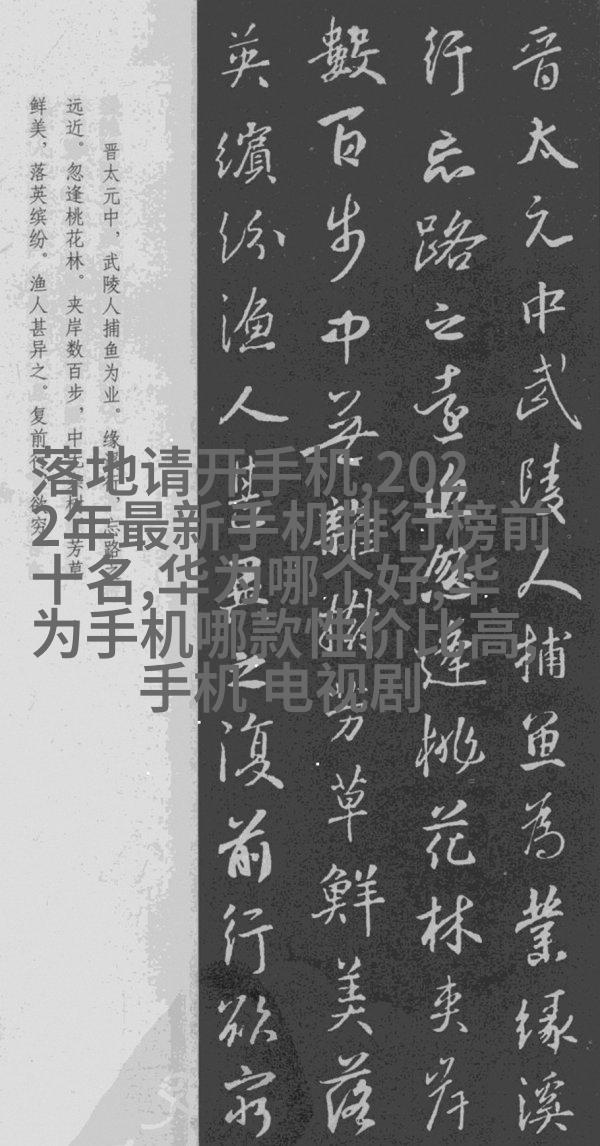 晋太元中武陵人捕魚為業緣溪
行忘路之遠近忽逢桃花林夹岸
數百步中無雜樹芳草鮮美落
英繽纷漁人甚異之復前行欲窮
晋太元中，武陵人捕鱼为业。缘溪行，忘路之
远近。忽逢桃花林。夹岸数百步，中无杂树，芳草
鲜美，落英缤纷。渔人甚异之。复前行，欲穷
落地请开手机,202
2年最新手机排行榜前
十名,华为哪个好,华
为手机哪款性价比高,
手机 电视剧